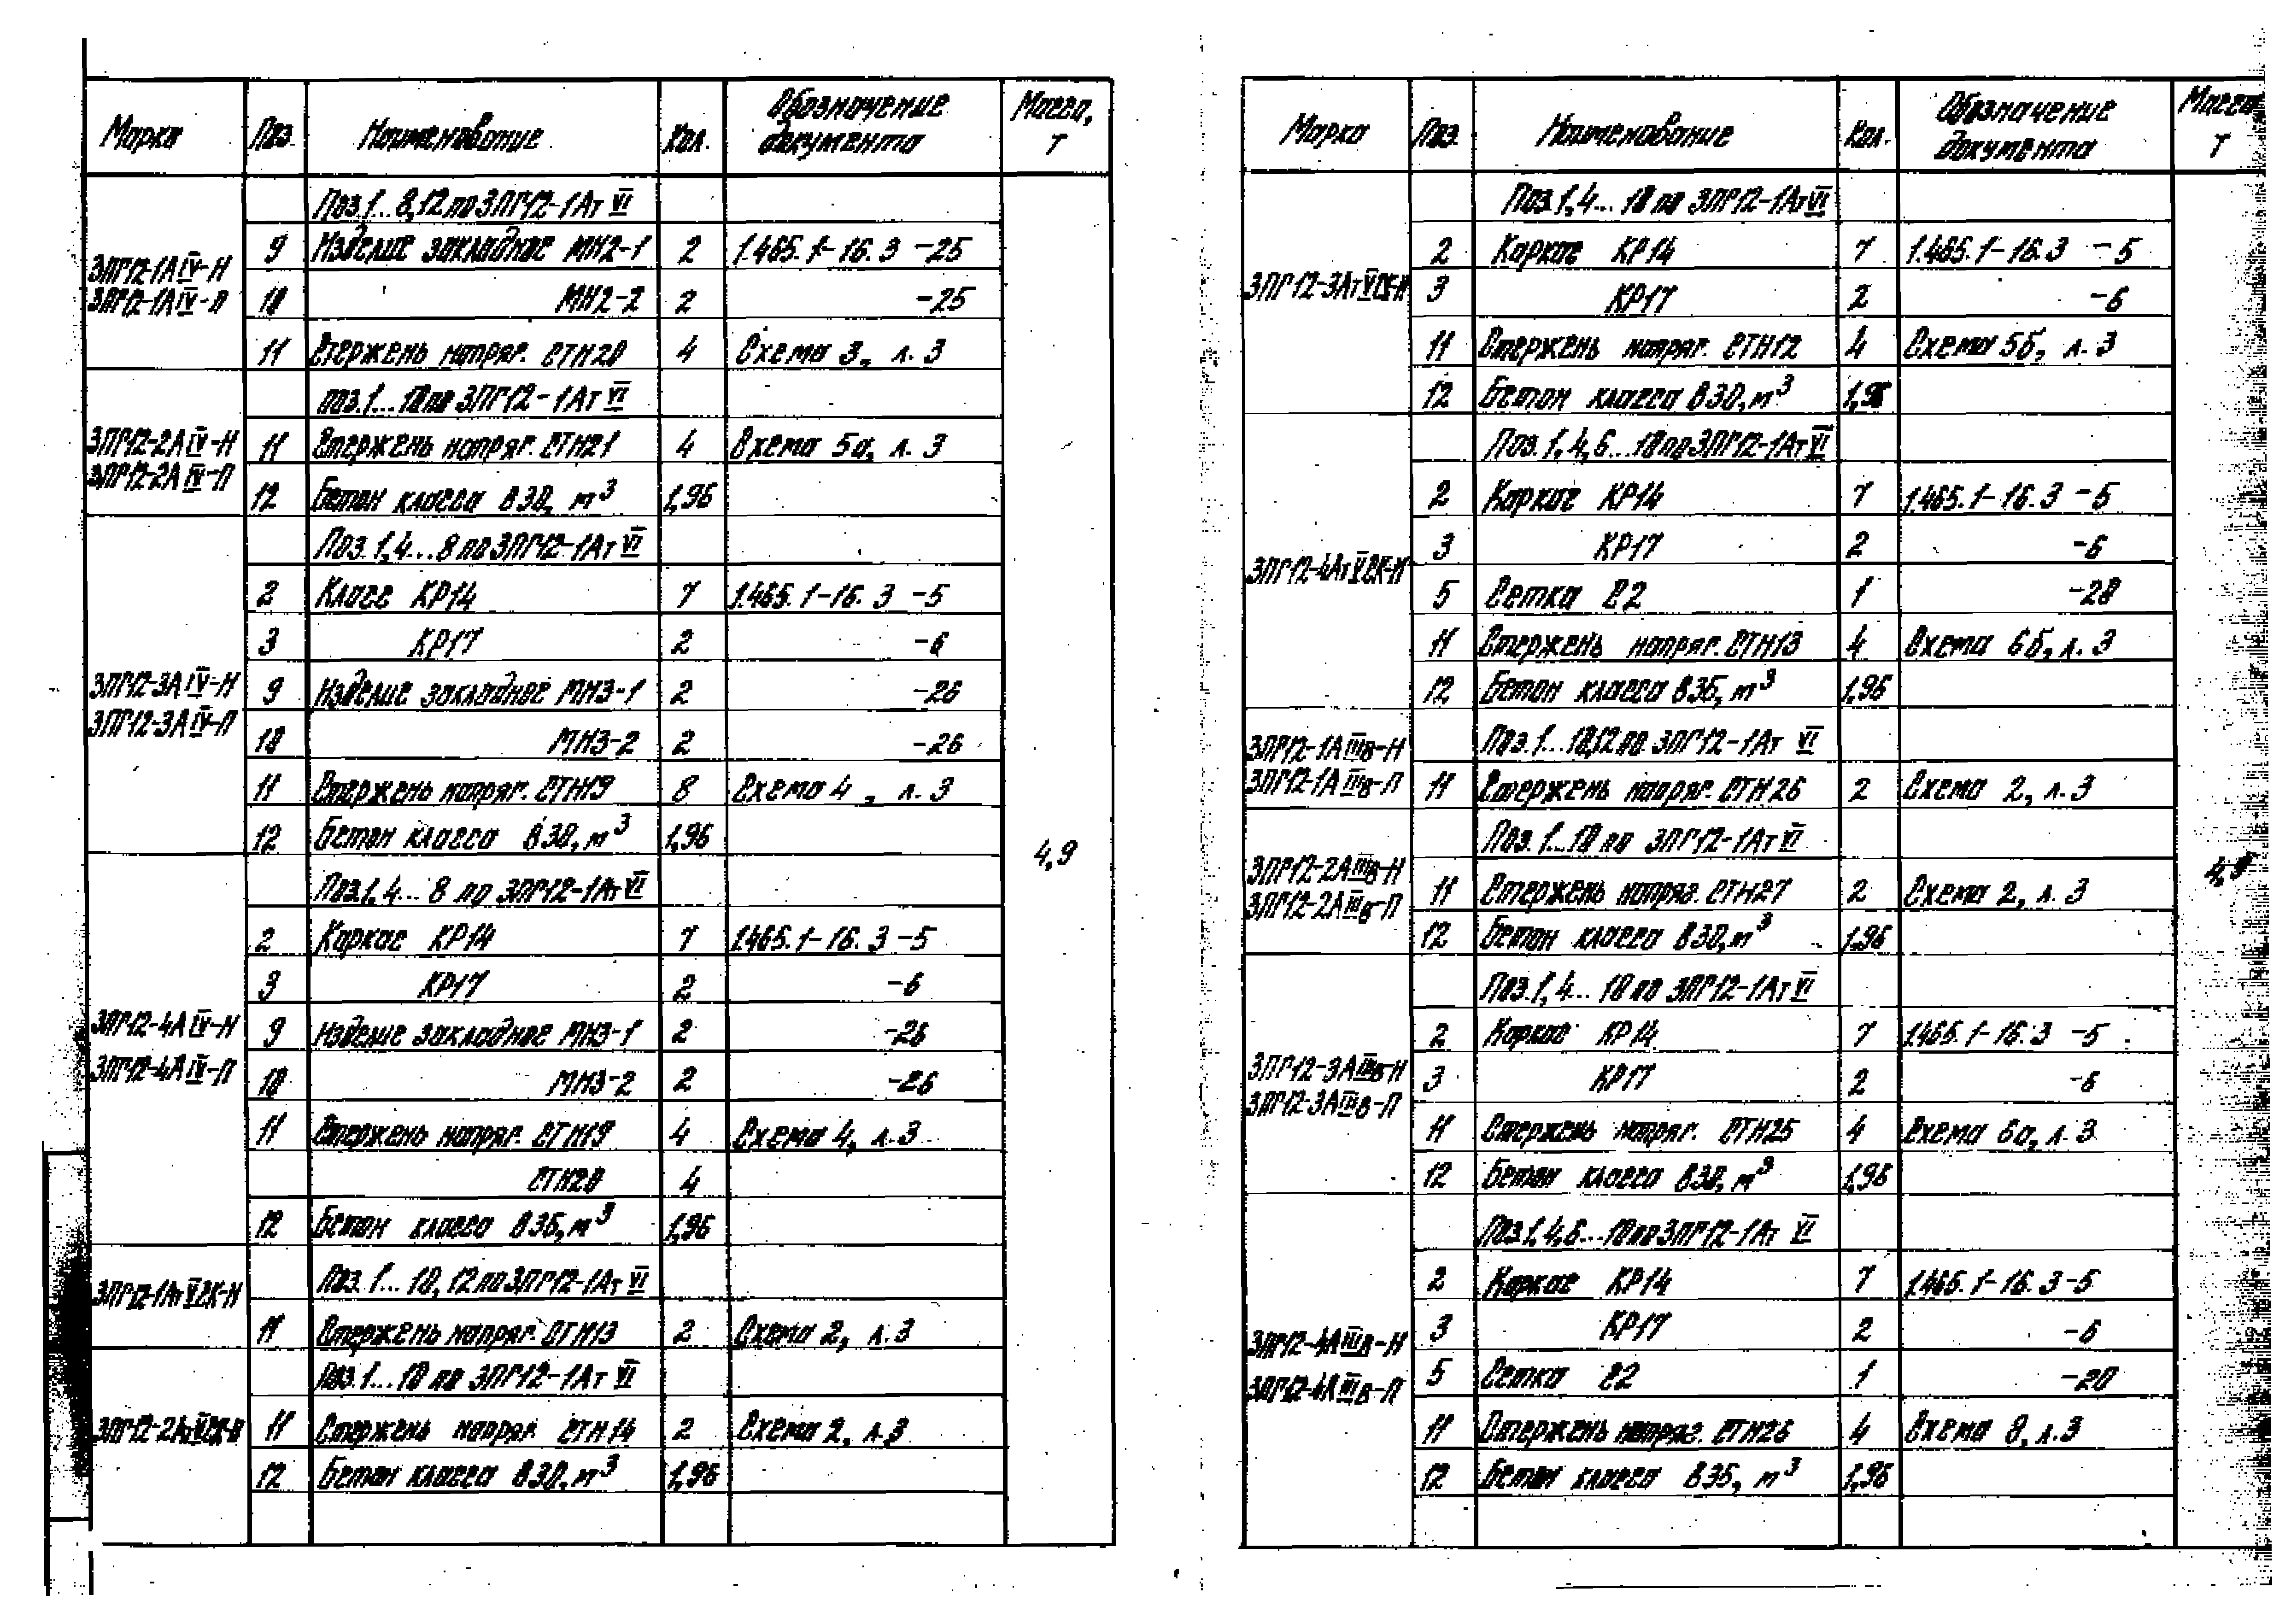 Марка Поз. Наименование Кол. Обозначение документа Масса, т
Поз.1...8,12 по 3ПГ12-1Ат VI
3ПГ12-1А IV-Н
3ПГ12-1А IV-П
9 Изделие закладное МН2-1 2 1.465.1-16.3 -25
10 МН2-2 2 -25
11 Стержень напряг. СТН20 4 Схема 3, л.3
поз.1...10 по 3ПГ12-1Ат VI
3ПГ12-2А IV-Н
3ПГ12-2А IV-П
11 Стержень напряг. СТН21 4 Схема 5а, л.3
12 Бетон класса В30, м³ 1,96
Поз.1,4...8 по 3ПГ12-1Ат VI
2 Класс КР14 7 1.465.1-16.3 -5
3 КР17 2 -6
3ПГ12-3А IV-Н
3ПГ12-3А IV-П
9 Изделие закладное МН3-1 2 -26
10 МН3-2 2 -26
11 Стержень напряг. СТН19 8 Схема 4, л.3
12 Бетон класса В30, м³ 1,96
4,9
Поз.1,4...8 по 3ПГ12-1Ат VI
2 Каркас КР14 7 1.465.1-16.3 -5
3 КР17 2 -6
3ПГ12-4А IV-Н
3ПГ12-4А IV-П
9 Изделие закладное МН3-1 2 -26
10 МН3-2 2 -26
11 Стержень напряг. СТН19 4 Схема 4, л.3
СТН20 4
12 Бетон класса В35, м³ 1,96
3ПГ12-1Ат VСК-Н
Поз.1...10,12 по 3ПГ12-1Ат VI
11 Стержень напряг. СТН13 2 Схема 2, л.3
Поз.1...10 по 3ПГ12-1Ат VI
3ПГ12-2Ат VСК-Н
11 Стержень напряг. СТН14 2 Схема 2, л.3
12 Бетон класса В30, м³ 1,96
Марка Поз. Наименование Кол. Обозначение документа Масса, т
Поз.1,4...10 по 3ПГ12-1Ат VI
2 Каркас КР14 7 1.465.1-16.3 -5
3ПГ12-3Ат VСК-Н
3 КР17 2 -6
11 Стержень напряг. СТН12 4 Схема 5б, л.3
12 Бетон класса В30, м³ 1,96
Поз.1,4,6...10 по 3ПГ12-1Ат VI
2 Каркас КР14 7 1.465.1-16.3 -5
3 КР17 2 -6
3ПГ12-4Ат VСК-Н
5 Сетка С2 1 -20
11 Стержень напряг. СТН13 4 Схема 6б, л.3
12 Бетон класса В35, м³ 1,96
3ПГ12-1А IIIв-Н
3ПГ12-1А IIIв-П
Поз.1...10,12 по 3ПГ12-1Ат VI
11 Стержень напряг. СТН26 2 Схема 2, л.3
Поз.1...10 по 3ПГ12-1Ат VI
3ПГ12-2А IIIв-Н
3ПГ12-2А IIIв-П
11 Стержень напряг. СТН27 2 Схема 2, л.3
4,9
12 Бетон класса В30, м³ 1,96
Поз.1,4...10 по 3ПГ12-1Ат VI
2 Каркас КР14 7 1.465.1-16.3 -5
3ПГ12-3А IIIв-Н
3ПГ12-3А IIIв-П
3 КР17 2 -6
11 Стержень напряг. СТН25 4 Схема 6а, л.3
12 Бетон класса В30, м³ 1,96
Поз.1,4,6...10 по 3ПГ12-1Ат VI
2 Каркас КР14 7 1.465.1-16.3 -5
3 КР17 2 -6
3ПГ12-4А IIIв-Н
3ПГ12-4А IIIв-П
5 Сетка С2 1 -20
11 Стержень напряг. СТН26 4 Схема 8, л.3
12 Бетон класса В35, м³ 1,96